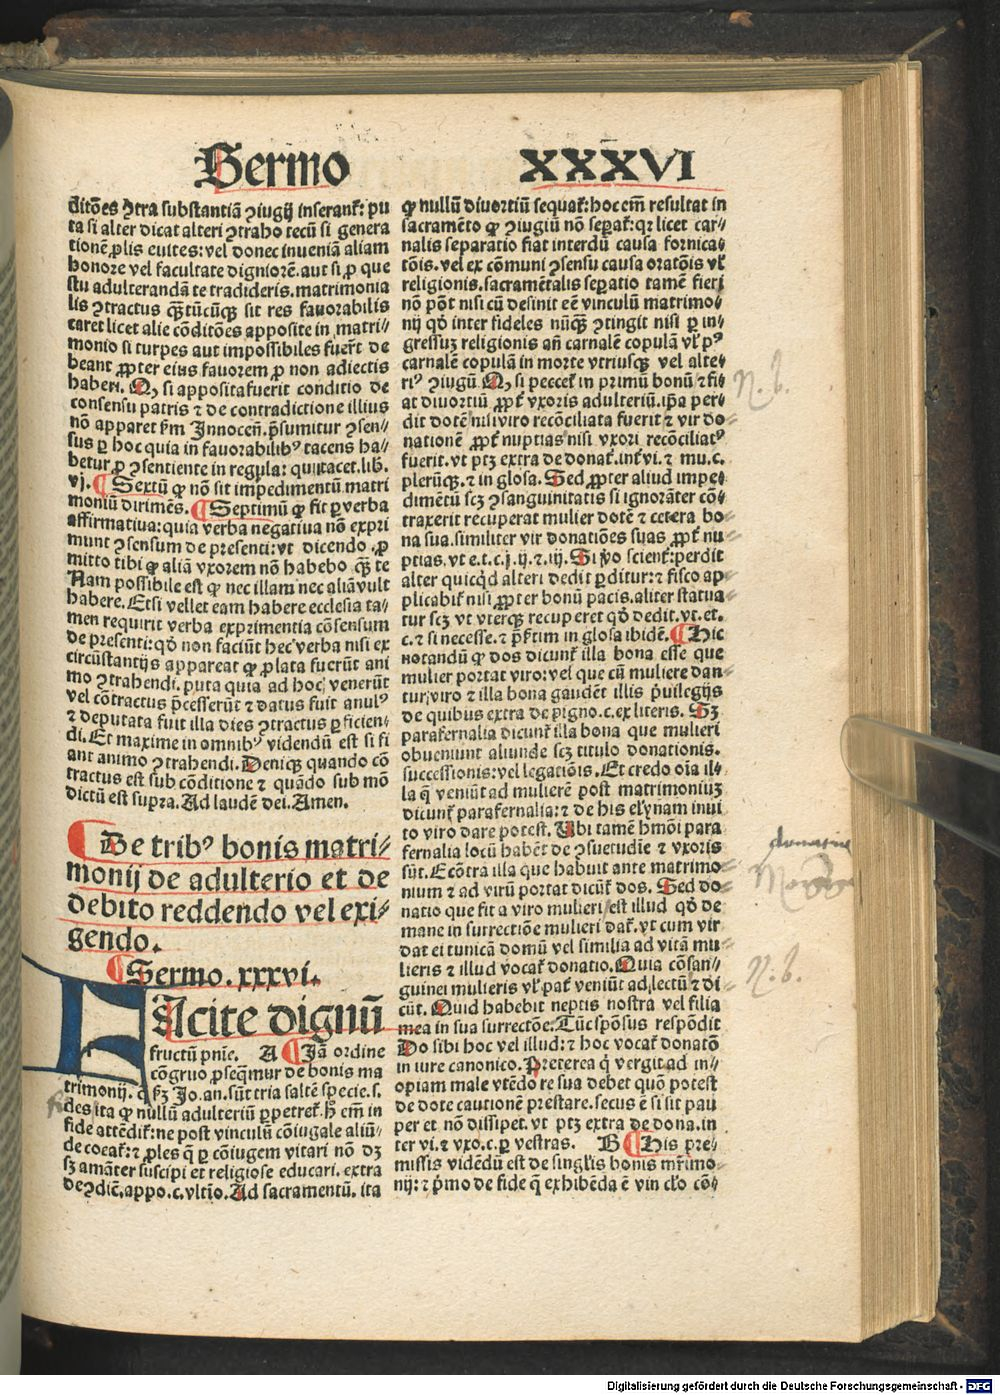 Sermo XXXVI
ditōes ꝯtra substantiā ꝯiugij inserant᷑: pu
ta si alter dicat alteri ꝯtraho tecū si genera
tionē ꝓlis euites: vel donec inueniā aliam
honore vel facultate digniorē. aut si ꝓ que
stu adulterandā te tradideris. matrimonia
lis ꝯtractus qᷓtūcūqꝫ sit res fauorabilis
caret licet alie cōditōes apposite in matri/
monio si turpes aut impossibiles fuer̄t de
beant ꝓpter eius fauorem ꝓ non adiectis
haberi. Qꝫ si apposita fuerit conditio de
consensu patris ⁊ de contradictione illius
nō apparet ẜm Innocen̄. p̄sumitur ꝯsen/
sus ꝑ hoc quia in fauorabilibꝰ tacens ha/
betur ꝓ ꝯsentiente in regula: qui tacet. lib.
vj. ¶ Sextū ꝙ nō sit impedimentū matri
moniū dirimēs. ¶ Septimū ꝙ fit ꝑ verba
affirmatiua: quia verba negatiua nō expri
munt ꝯsensum de presenti: vt dicendo ꝓ
mitto tibi ꝙ aliā vxorem nō habebo qᷓ te
Nam possibile est ꝙ nec illam nec aliā vult
habere. Etsi vellet eam habere ecclesia ta/
men requirit verba exprimentia cōsensum
de presenti: qd̄ non faciūt hec verba nisi ex
circūstantijs appareat ꝙ ꝓlata fuerūt ani
mo ꝯtrahendi. puta quia ad hoc venerūt
vel cōtractus p̄cesserūt ⁊ datus fuit anulꝰ
⁊ deputata fuit illa dies ꝯtractus ꝑficien/
di. Et maxime in omnibꝰ videndū est si fi
ant animo ꝯtrahendi. Deniqꝫ quando cō
tractus est sub cōditione ⁊ quādo sub mō
dictū est supra. Ad laudē dei. Amen.
¶ De tribꝰ bonis matri/
monij de adulterio et de
debito reddendo vel exi/
gendo.
¶ Sermo .xxxvi.
FAcite dignū
fructū pn̄ie. A ¶ Jā ordine
cōgruo ꝓseqmur de bonis ma
trimonij. q ẜꝫ Jo. an. sūt tria saltē specie. s.
fides ita ꝙ nullū adulteriū ꝑpetret᷑. hꝫ em̄ in
fide attēdit᷑: ne post vinculū cōiugale aliū/
de coeat᷑: ⁊ ꝓles q̄ ꝑ cōiugem vitari nō dꝫ
sꝫ amāter suscipi et religiose educari. extra
de ꝯdic̄. appo. c. vltīo. Ad sacramentū. ita
ꝙ nullū diuortiū sequat᷑: hoc em̄ resultat in
sacramēto ꝙ ꝯiugiū nō sepat᷑: qꝛ licet car/
nalis separatio fiat interdū causa fornica/
tōis. vel ex cōmuni ꝯsensu causa oratōis vl᷑
religionis. sacramētalis sepatio tamē fieri
nō pōt nisi cū desinit eē vinculū matrimo/
nij qd̄ inter fideles nūqꝫ ꝯtingit nisi ꝑ in/
gressuꝫ religionis an̄ carnalē copulā vl᷑ pꝰ
carnalē copulā in morte vtriusqꝫ vel alte/
riꝰ ꝯiugū. Qꝫ si peccet᷑ in primū bonū ⁊ fi/
at diuortiū ꝓpt᷑ vxoris adulteriū. ip̄a per/
dit dotē nisi viro recōciliata fuerit ⁊ vir do/
nationē ꝓpt᷑ nuptias nisi vxori recōciliatꝰ
fuerit. vt ptꝫ extra de donat᷑. int᷑ vi. ⁊ mu. c.
plerūqꝫ. ⁊ in glosa. Sed ꝓpter aliud impe/
dimētū scꝫ ꝯsanguinitatis si ignorāter cō/
traxerit recuperat mulier dotē ⁊ cetera bo/
na sua. similiter vir donatiōes suas ꝓpt᷑ nu/
ptias. vt e. t. c. j. ij. ⁊. iij. Si vo scient᷑: perdit
alter quicqd alteri dedit ꝑditur: ⁊ fisco ap/
plicabit᷑ nisi ꝓpter bonū pacis. aliter statua/
tur scꝫ vt vterqꝫ recuperet qd̄ dedit. vt. et.
c. ⁊ si necesse. ⁊ p̄t᷑tim in glosa ibidē. ¶ Hic
notandū ꝙ dos dicunt᷑ illa bona esse que
mulier portat viro: vel que cū muliere dan/
tur viro ⁊ illa bona gaudēt illis p̄uilegijs
de quibus extra de pigno. c. ex literis. Sꝫ
parafernalia dicunt᷑ illa bona que mulieri
obueniunt aliunde scꝫ titulo donationis.
successionis: vel legatiōis. Et credo oīa il/
la q̄ veniūt ad mulierē post matrimoniuꝫ
dicunt᷑ parafernalia: ⁊ de his etynam inui
to viro dare potest. Ubi tamē hmōi para
fernalia locū habēt de ꝯsuetudīe ⁊ vxoris
sūt. Ecōtra illa que habuit ante matrimo/
nium ⁊ ad virū portat dicūt᷑ dos. Sed do/
natio que fit a viro mulieri est illud qd̄ de
mane in surrectiōe mulieri dat᷑. vt cum vir
dat ei tunicā domū vel similia ad vitā mu/
lieris ⁊ illud vocat᷑ donatio. Quia cōsan/
guinei mulieris vl᷑ pat᷑ veniūt ad lectū ⁊ di/
cūt. Quid habebit neptis nostra vel filia
mea in sua surrectōe. Tūc spōsus respōdit
Do sibi hoc vel illud: ⁊ hoc vocat᷑ donatō
in iure canonico. Preterea q̇ vergit ad in/
opiam male vtēdo re sua debet quō potest
de dote cautionē prestare. secus ē si sit pau
per et nō dissipet. vt ptꝫ extra de dona. in
ter vi. ⁊ vxo. c. ꝑ vestras. B ¶ His pre/
missis vidēdū est de singl᷑is bonis mr̄imo/
nij: ⁊ pͥmo de fide q̄ exhibēda ē vinclo cō/
N. b.
donatio
N. b.
Digitalisierung gefördert durch die Deutsche Forschungsgemeinschaft - DFG